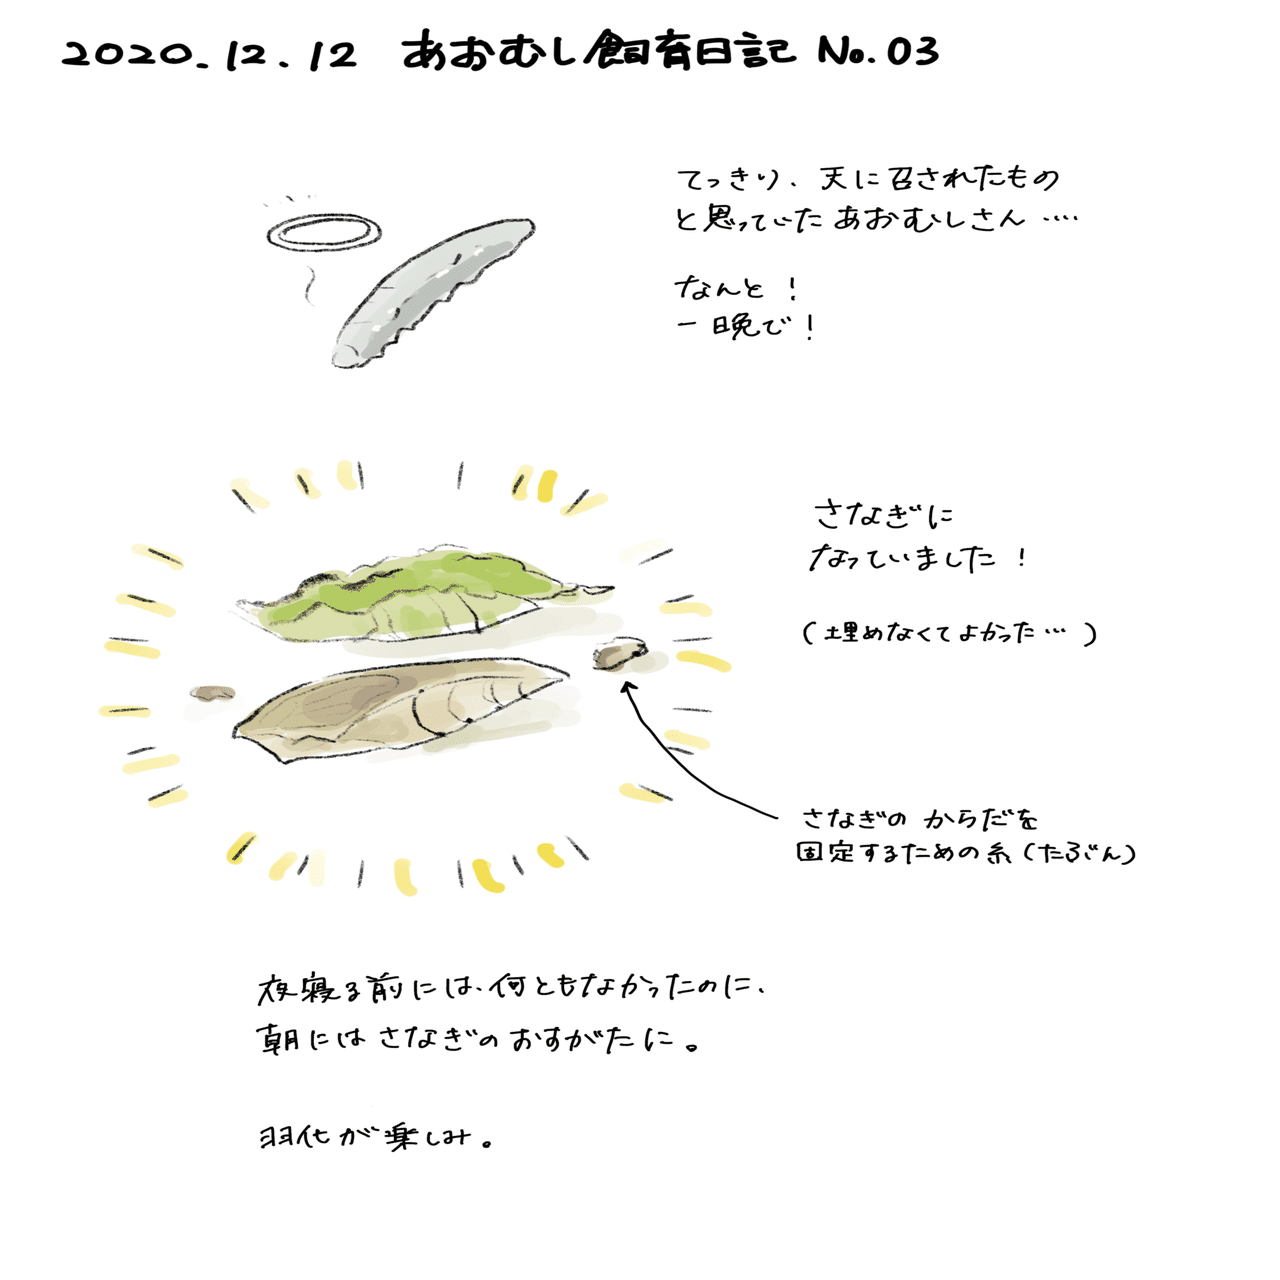 2020.12.12 あおむし飼育日記 No.03
てっきり、天に召されたもの
と思っていた あおむしさん ‥‥
なんと！
一晩で！
さなぎに
なっていました！
（埋めなくてよかった…）
さなぎの からだを
固定するための糸（たぶん）
夜寝る前には、何ともなかったのに、
朝には さなぎの おすがたに。
羽化が楽しみ。